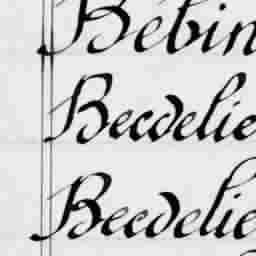 Bébin
Becdelie
Becdelie